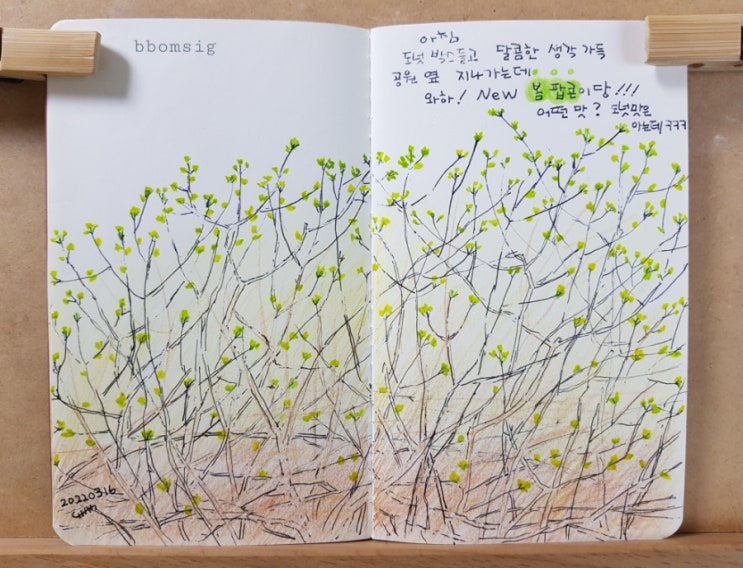 bbomsig
아침
도넛 박스 들고 달콤한 생각 가득
공원 옆 지나가는데...
와하! New 봄 팝콘이당!!!
어떤 맛? 도넛맛은
아는데 ㅋㅋㅋ
20220316